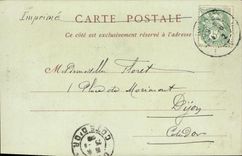 Imprimé
CARTE POSTALE
Ce côté est exclusivement réservé à l'adresse
Mademoiselle Floret
1 Place du Morimont
Dijon
Côte d'Or
COTE-D'OR